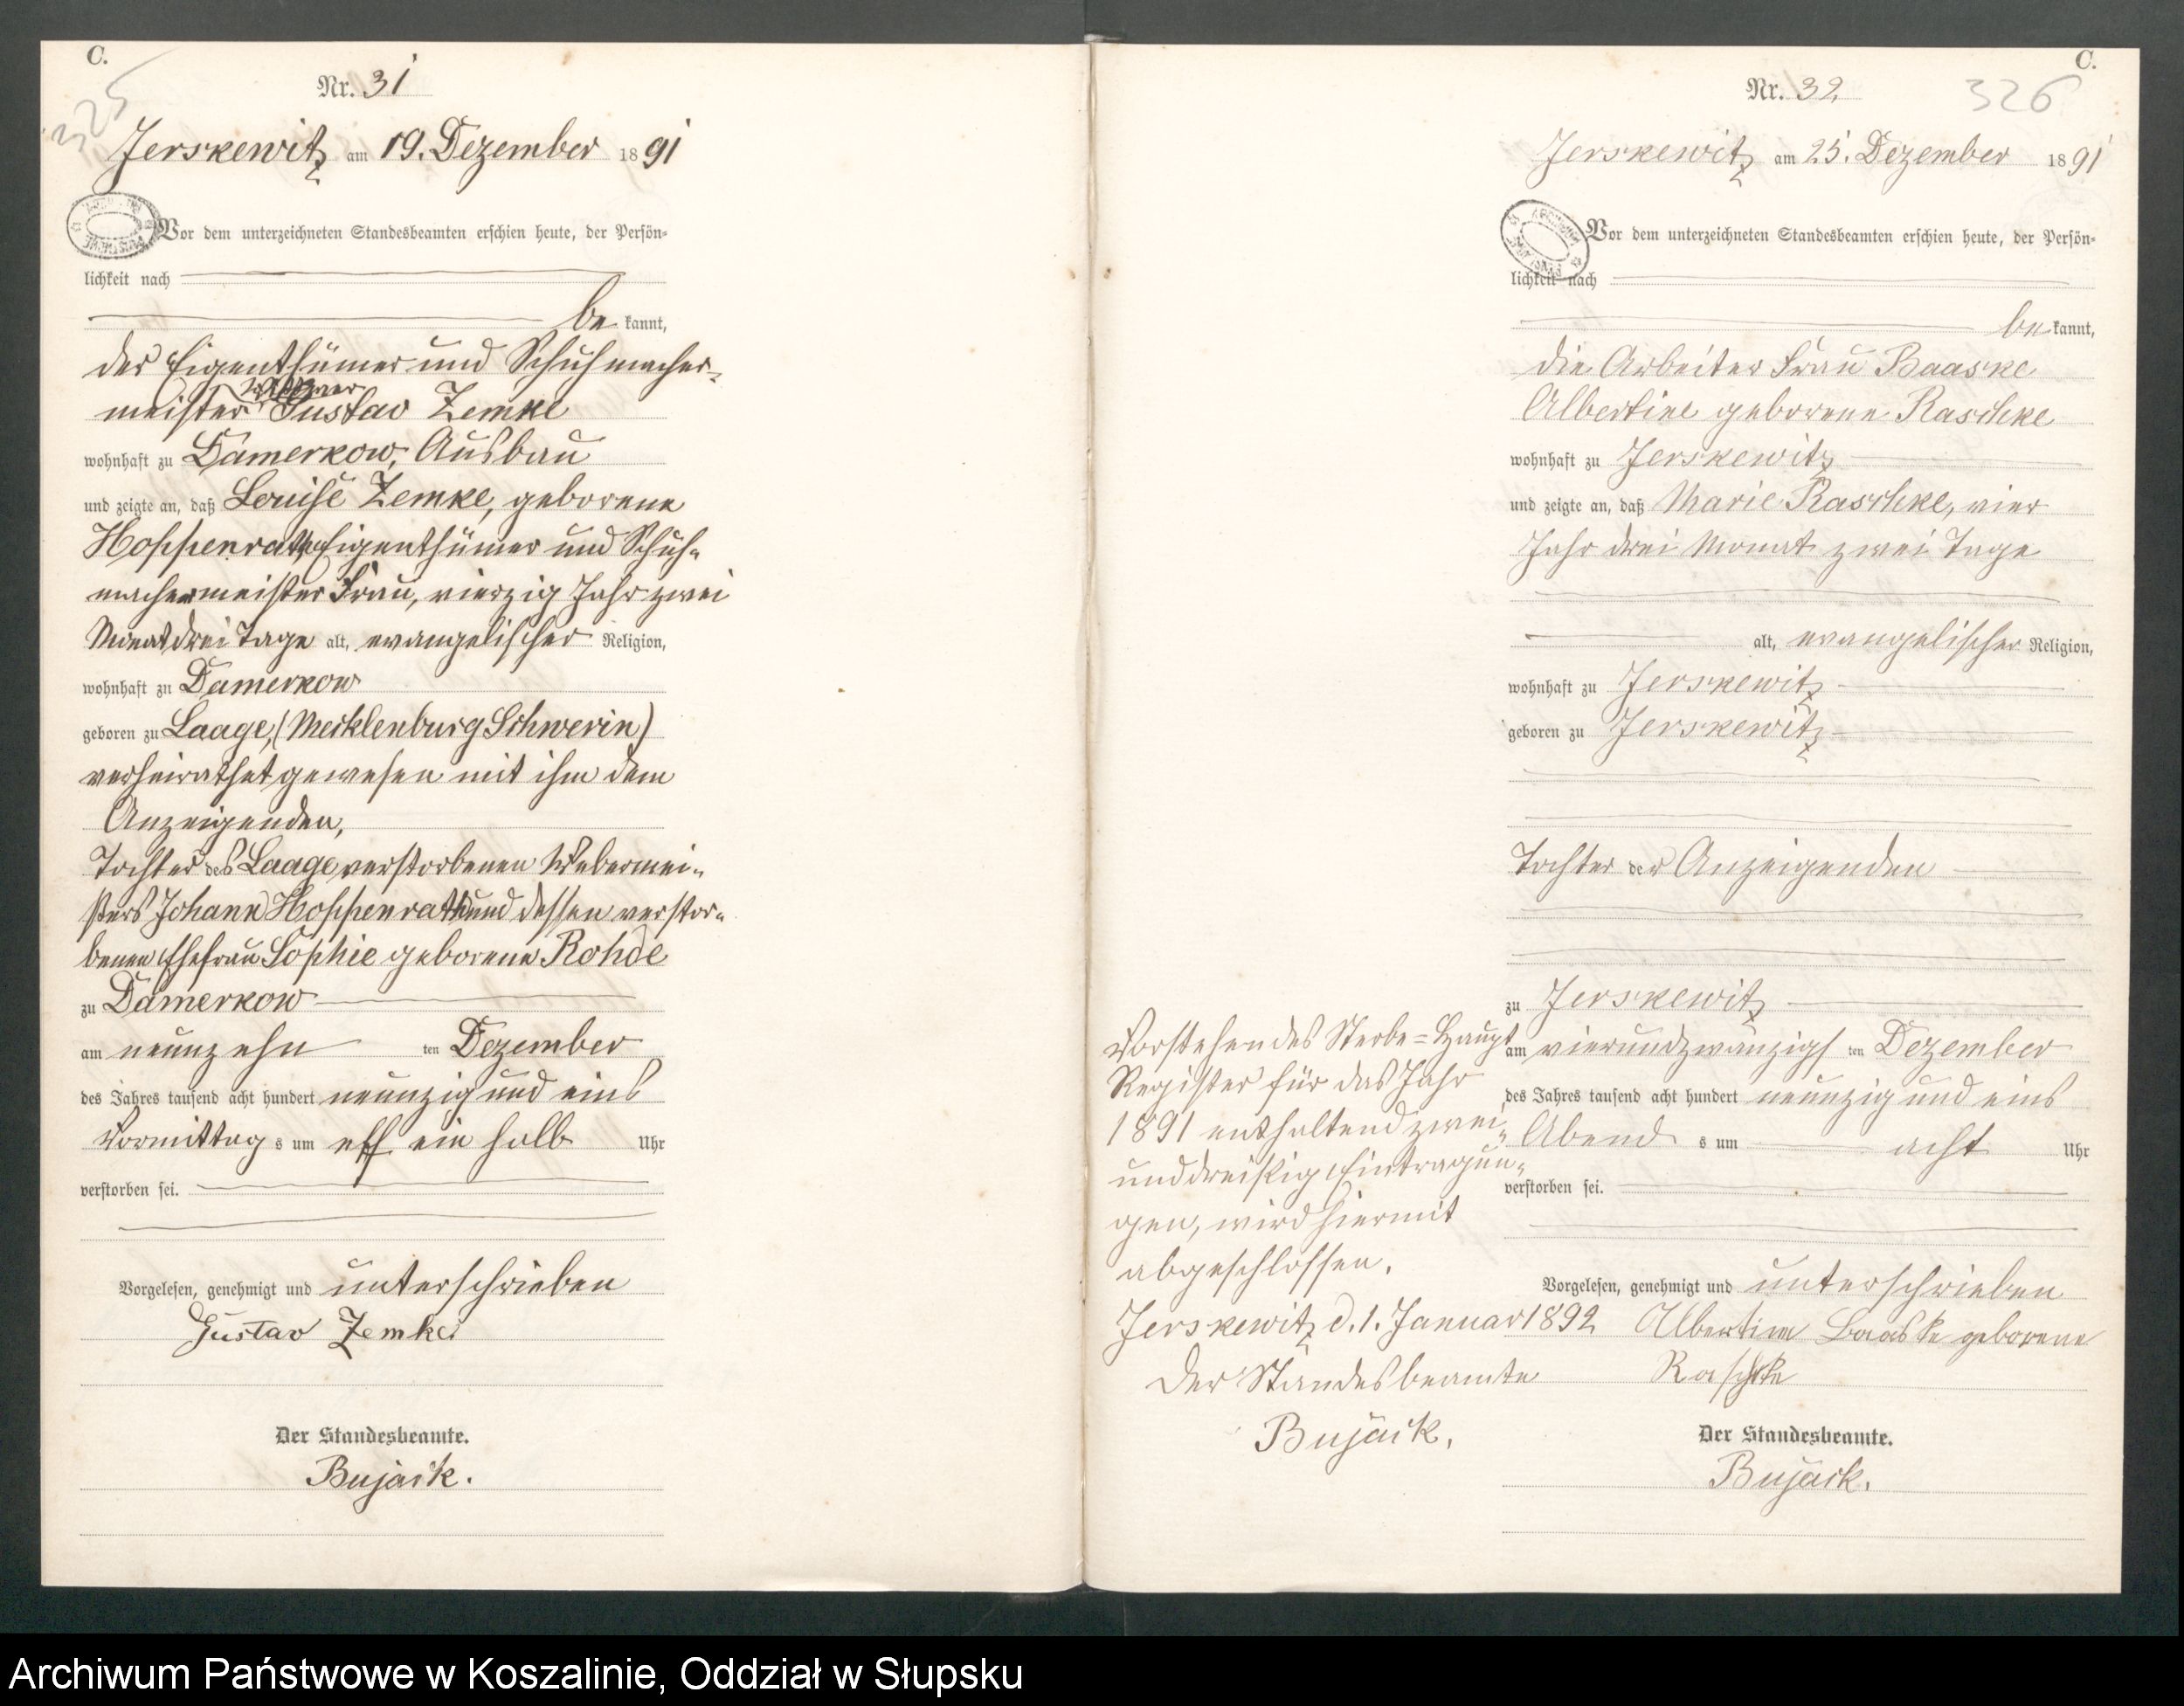 C.
325
Nr. 31
Jerskewitz am 19. Dezember 1891
Vor dem unterzeichneten Standesbeamten erschien heute, der Persön-
lichkeit nach
be kannt,
der Eigenthümer und Schuhmacher-
meister Gustav Zemke
wohnhaft zu Damerkow, Ausbau
und zeigte an, daß Louise Zemke, geborene
Hoppenrath, Eigenthümer und Schuh-
machermeister Frau, vierzig Jahr zwei
Monat drei Tage alt, evangelischer Religion,
wohnhaft zu Damerkow
geboren zu Laage, (Mecklenburg Schwerin)
verheirathet gewesen mit ihm dem
Anzeigenden,
Tochter des Laage verstorbenen Webermei-
sters Johann Hoppenrath und dessen verstor-
benen Ehefrau Sophie geborene Rohde
zu Damerkow
am neunzehn ten Dezember
des Jahres tausend acht hundert neunzig und eins
Vormittag s um elf ein halb Uhr
verstorben sei.
Vorgelesen, genehmigt und unterschrieben
Gustav Zemke
Der Standesbeamte.
Bujack.
C.
326
Nr. 32
Jerskewitz am 25. Dezember 1891
Vor dem unterzeichneten Standesbeamten erschien heute, der Persön-
lichkeit nach
be kannt,
die Arbeiter Frau Baaske
Albertine geborene Raschke
wohnhaft zu Jerskewitz
und zeigte an, daß Marie Raschke, vier
Jahr drei Monat zwei Tage
alt, evangelischer Religion,
wohnhaft zu Jerskewitz
geboren zu Jerskewitz
Tochter der Anzeigenden
zu Jerskewitz
am vierundzwanzigs ten Dezember
des Jahres tausend acht hundert neunzig und eins
Abend s um acht Uhr
verstorben sei.
Vorgelesen, genehmigt und unterschrieben
Albertine Baaske geborene
Raschke
Der Standesbeamte.
Bujack.
Vorstehendes Sterbe-Haupt
Register für das Jahr
1891 enthaltend zwei-
unddreißig Eintragun-
gen, wird hiermit
abgeschlossen.
Jerskewitz d. 1. Januar 1892
Der Standesbeamte
Bujack.
Archiwum Państwowe w Koszalinie, Oddział w Słupsku